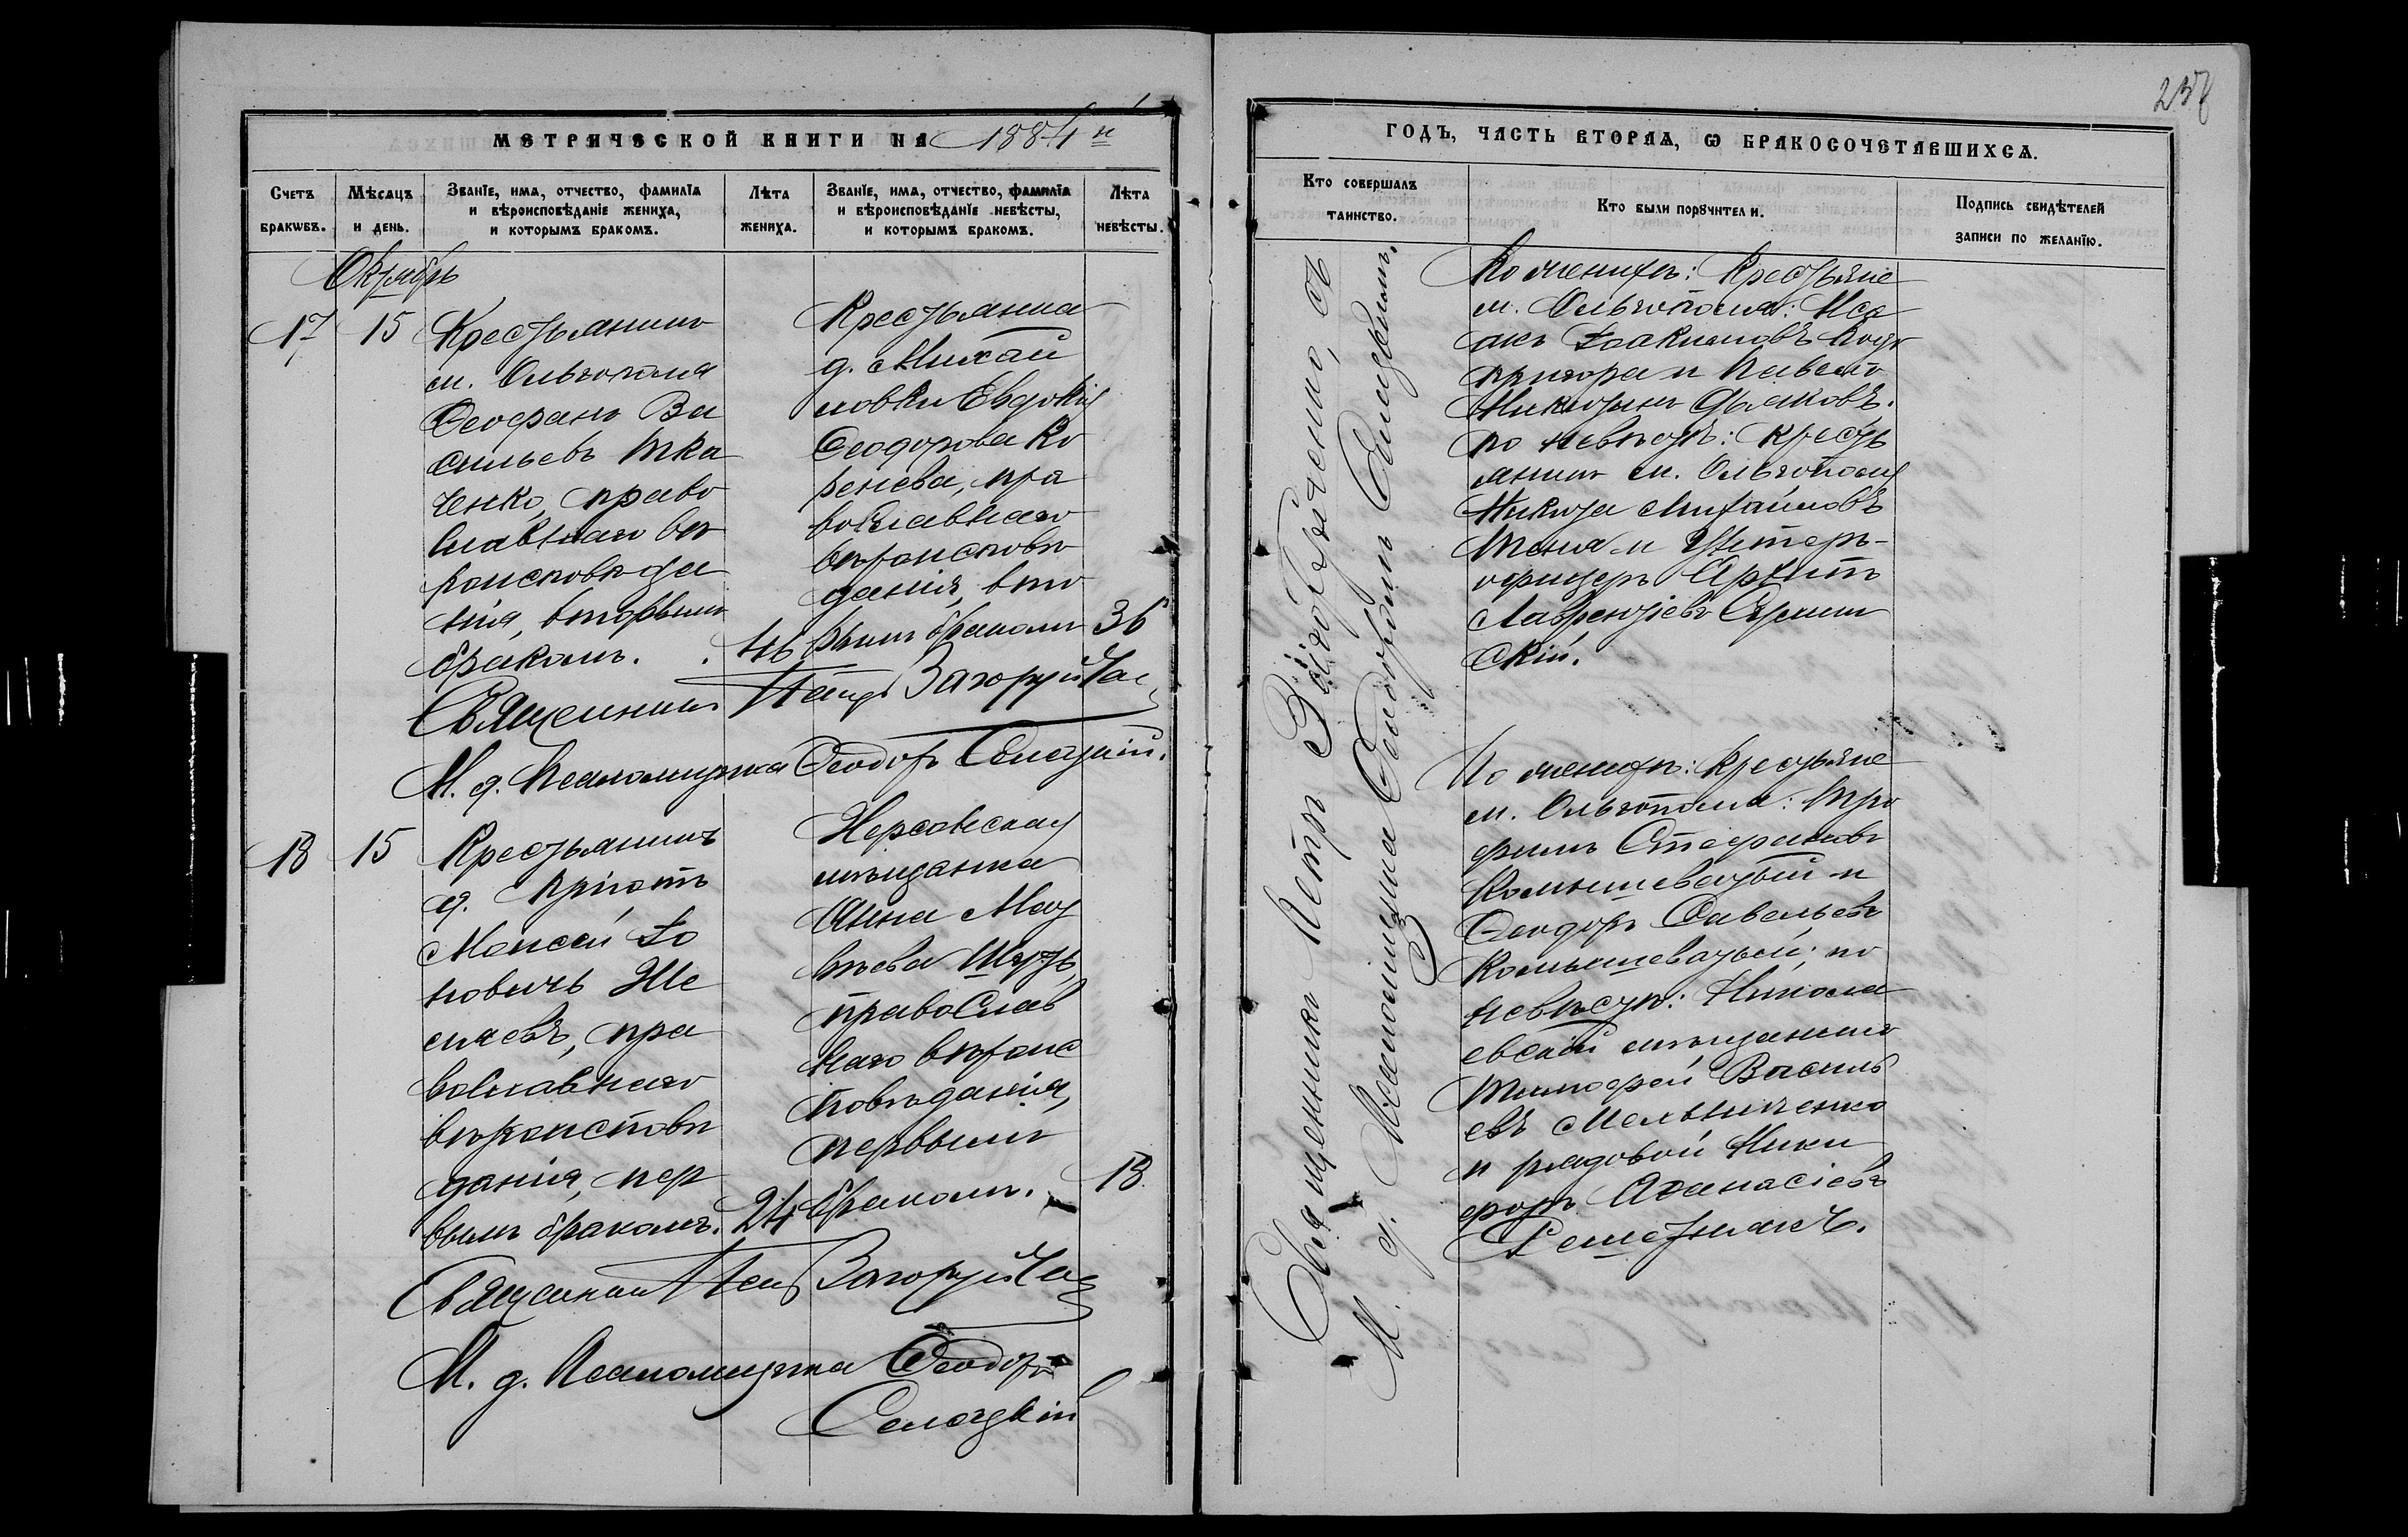 МЕТРИЧЕСКОЙ КНИГИ НА 1884 й
Счетъ бракѡвъ.
Мѣсѧцъ и день.
Званїе, имѧ, отчество, фамилїѧ и вѣроисповѣданїе жениха, и которымъ бракомъ.
Лѣта жениха.
Званїе, имѧ, отчество, фамилїѧ и вѣроисповѣданїе невѣсты, и которымъ бракомъ.
Лѣта невѣсты.
Октябрь
17
15
Крестьянинъ
м. Ольгополя
Феофанъ Ва
сильевъ Тка
ченко, право
славнаго вѣ
роисповѣда
нія, вторымъ
бракомъ.
46
Крестьянка
д. Михай
ловки Евдокія
Феодорова Ко
ренева, пра
вославнаго
вѣроисповѣ
данія, вто
рымъ бракомъ
36
Священникъ Петръ Загоруйч
И. д. Псаломщика Феодоръ
18
15
Крестьянинъ
д. Пріютъ
Моисей Іо
новичъ Же
ляевъ, пра
вославнаго
вѣроисповѣ
данія, пер
вымъ бракомъ.
24
Херсонская
мѣщанка
Анна Мат
вѣева
православ
наго вѣроис
повѣданія,
первымъ
бракомъ.
18
Священникъ Петръ Загоруйч
И. д. Псаломщика Феодоръ
238
ГОДЪ, ЧАСТЬ ВТОРАѦ, Ѡ БРАКОСОЧЕТАВШИХСѦ.
Кто совершалъ таинство.
Кто были порꙋчители.
Подпись свидѣтелей записи по желанїю.
Священникъ Петръ съ
И. д. Псаломщика Феодоромъ
По женихѣ: Крестьяне
м. Ольгополя: Иса
акъ Іоакимовъ Под
пригора и Павелъ
Никитинъ Дьяковъ.
по невѣстѣ: Кресть
янинъ м. Ольгополя
Никита Михайловъ
и Унтеръ-
офицеръ Архипъ
Лаврентіевъ
скій.
По женихѣ: Крестьяне
м. Ольгополя: Тро
фимъ Стефановъ
Комышеватый и
Феодоръ Савельевъ
Комышеватый; по
невѣстѣ: Никола
евскій мѣщанинъ
Тимофей Василь
евъ Мельниченко
и рядовой Ники
форъ Афанасіевъ
Решетнякъ.